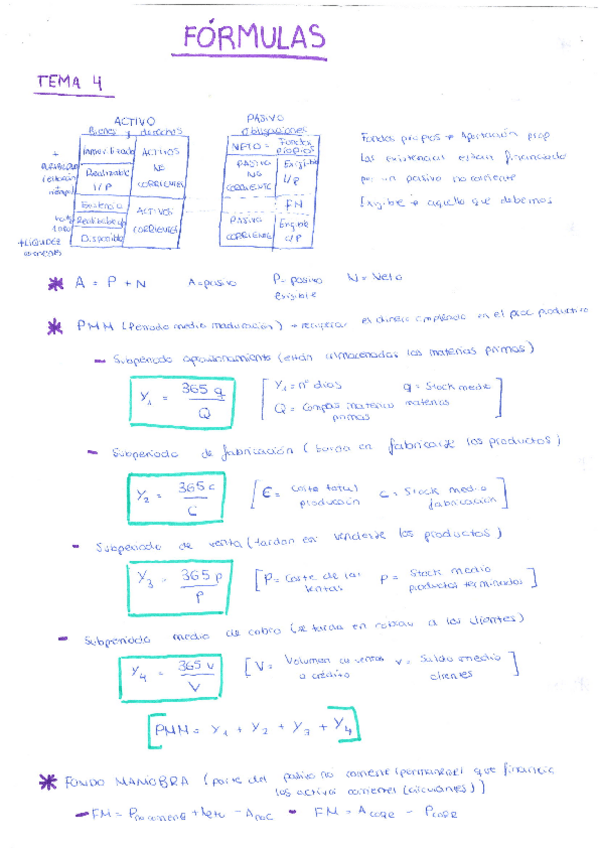 FÓRMULAS
TEMA 4
ACTIVO
Bienes y derechos
PASIVO
Obligaciones
Inmovilizado
Realizable l/p
Existencia
Realizable
Disponible
ACTIVOS NO CORRIENTES
ACTIVOS CORRIENTES
+ LIQUIDEZ
NETO = Fondos propios
PASIVO NO CORRIENTE
Exigible l/p
FN
PASIVO CORRIENTE
Exigible c/p
Fondos propios → Aportación prop
Las existencias estan financiado
por un pasivo no corriente
Exigible → aquello que debemos
* A = P + N A = pasivo P = pasivo exigible N = Neto
* PMM (Periodo medio maduración) → recuperar el dinero empleado en el proc productivo
- Subperiodo aprovisionamiento (están almacenadas las materias primas)
Y₁ = 365 q / Q
[ Y₁ = nº días q = Stock medio materias
Q = Compras materias primas ]
- Subperiodo de fabricación ( tarda en fabricarse los productos)
Y₂ = 365 c / C
[ C = Coste total producción c = Stock medio fabricación ]
- Subperiodo de venta (tardan en venderse los productos)
Y₃ = 365 p / P
[ P = Coste de las ventas p = Stock medio productos terminados ]
- Subperiodo medio de cobro (se tarda en cobrar a los clientes)
Y₄ = 365 v / V
[ V = Volumen de ventas a crédito v = Saldo medio clientes ]
[ PMM = Y₁ + Y₂ + Y₃ + Y₄ ]
* FONDO MANIOBRA (parte del pasivo no corriente (permanente) que financia
los activos corrientes (circulantes) )
- FM = P no corriente + Neto - A noc - FM = A corr - P corr